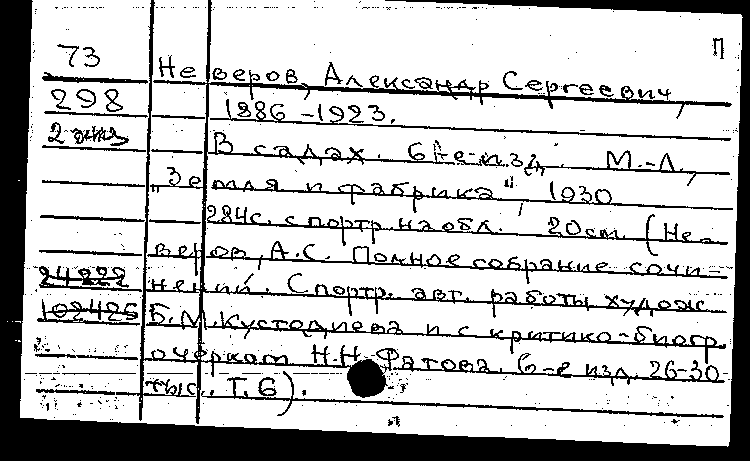 П
73 Неверов, Александр Сергеевич,
298 1886-1923.
2 экз В садах. 6-е изд. М.-Л.,
"Земля и фабрика", 1930
284с. с портр. на обл. 20см (Не-
веров, А.С. Полное собрание сочи-
24222 нений. С портр. авт. работы худож
102425 Б.М.Кустодиева и с критико-биогр.
очерком Н.Н.Фатова. 6-е изд. 26-30
тыс. Т.6).